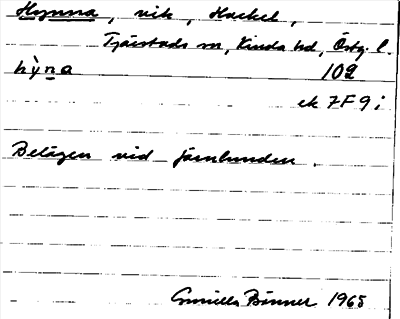 Hynna, vik, Hackel,
Tjärstads sn, Kinda hd, Östg. l.
hy̆na 102
ek 7F9i
Belägen vid Järnlunden.
Gunilla Bönner 1965